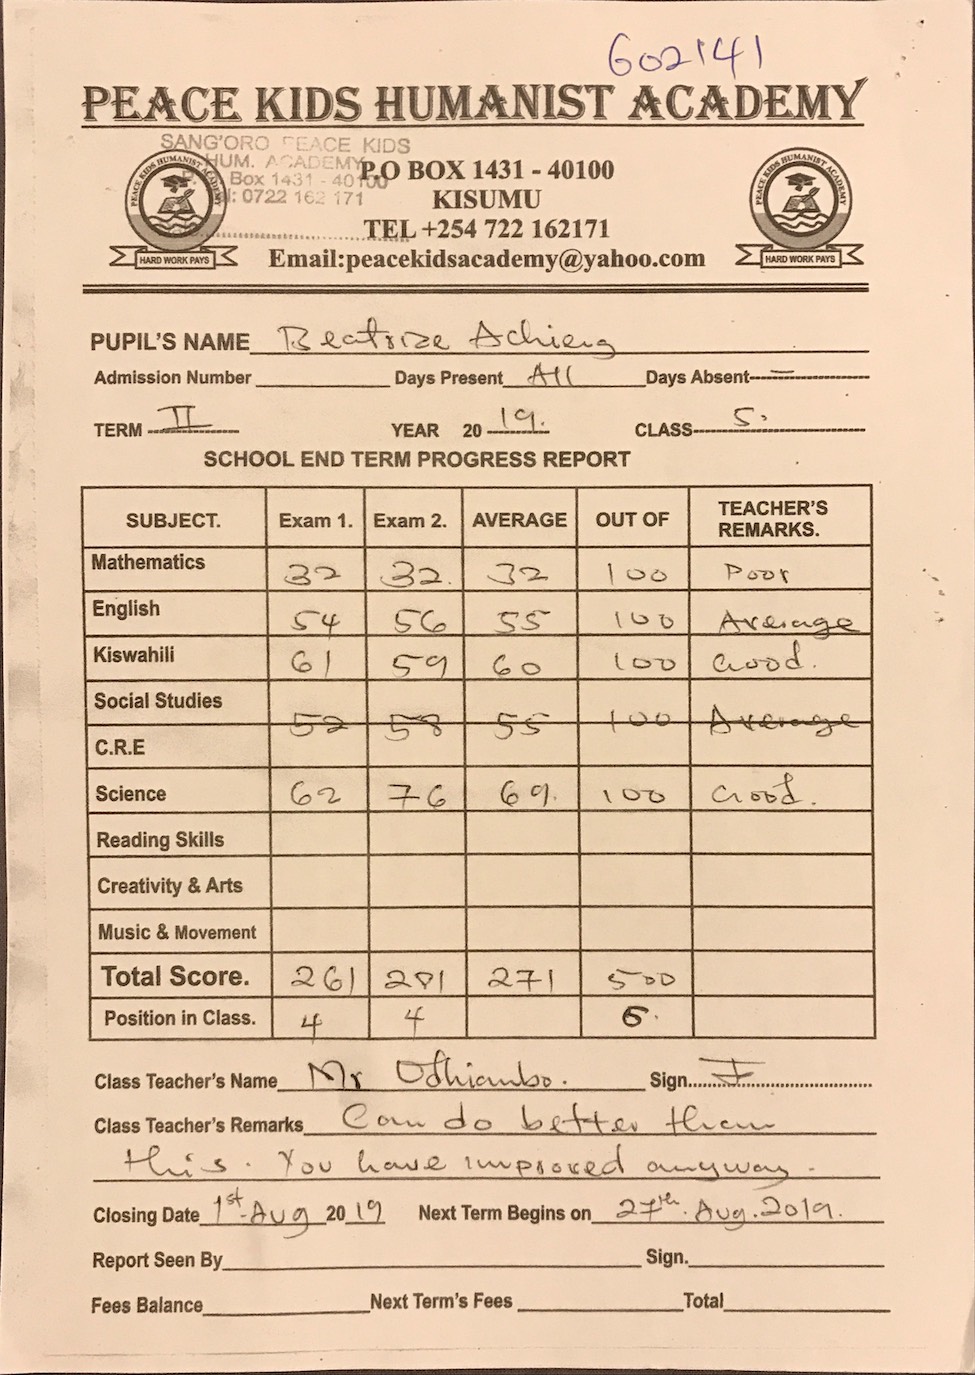 602141
PEACE KIDS HUMANIST ACADEMY
SANG'ORO PEACE KIDS
HUM. ACADEMY
P.O BOX 1431 - 40100
Box 1431 - 40100
KISUMU
0722 162 171
TEL +254 722 162171
Email:peacekidsacademy@yahoo.com
PEACE KIDS HUMANIST ACADEMY
HARD WORK PAYS
PEACE KIDS HUMANIST ACADEMY
HARD WORK PAYS
PUPIL'S NAME Beatrize Achieng
Admission Number Days Present All Days Absent –
TERM II YEAR 20 19. CLASS 5.
SCHOOL END TERM PROGRESS REPORT
SUBJECT. Exam 1. Exam 2. AVERAGE OUT OF TEACHER'S REMARKS.
Mathematics 32 32. 32 100 Poor
English 54 56 55 100 Average
Kiswahili 61 59 60 100 Good.
Social Studies
52 58 55 100 Average
C.R.E
Science 62 76 69. 100 Good.
Reading Skills
Creativity & Arts
Music & Movement
Total Score. 261 281 271 500
Position in Class. 4 4 6.
Class Teacher's Name Mr Odhiambo. Sign.
Class Teacher's Remarks Can do better than
this. You have improved anyway.
Closing Date 1st Aug 2019 Next Term Begins on 27th. Aug. 2019.
Report Seen By Sign.
Fees Balance Next Term's Fees Total